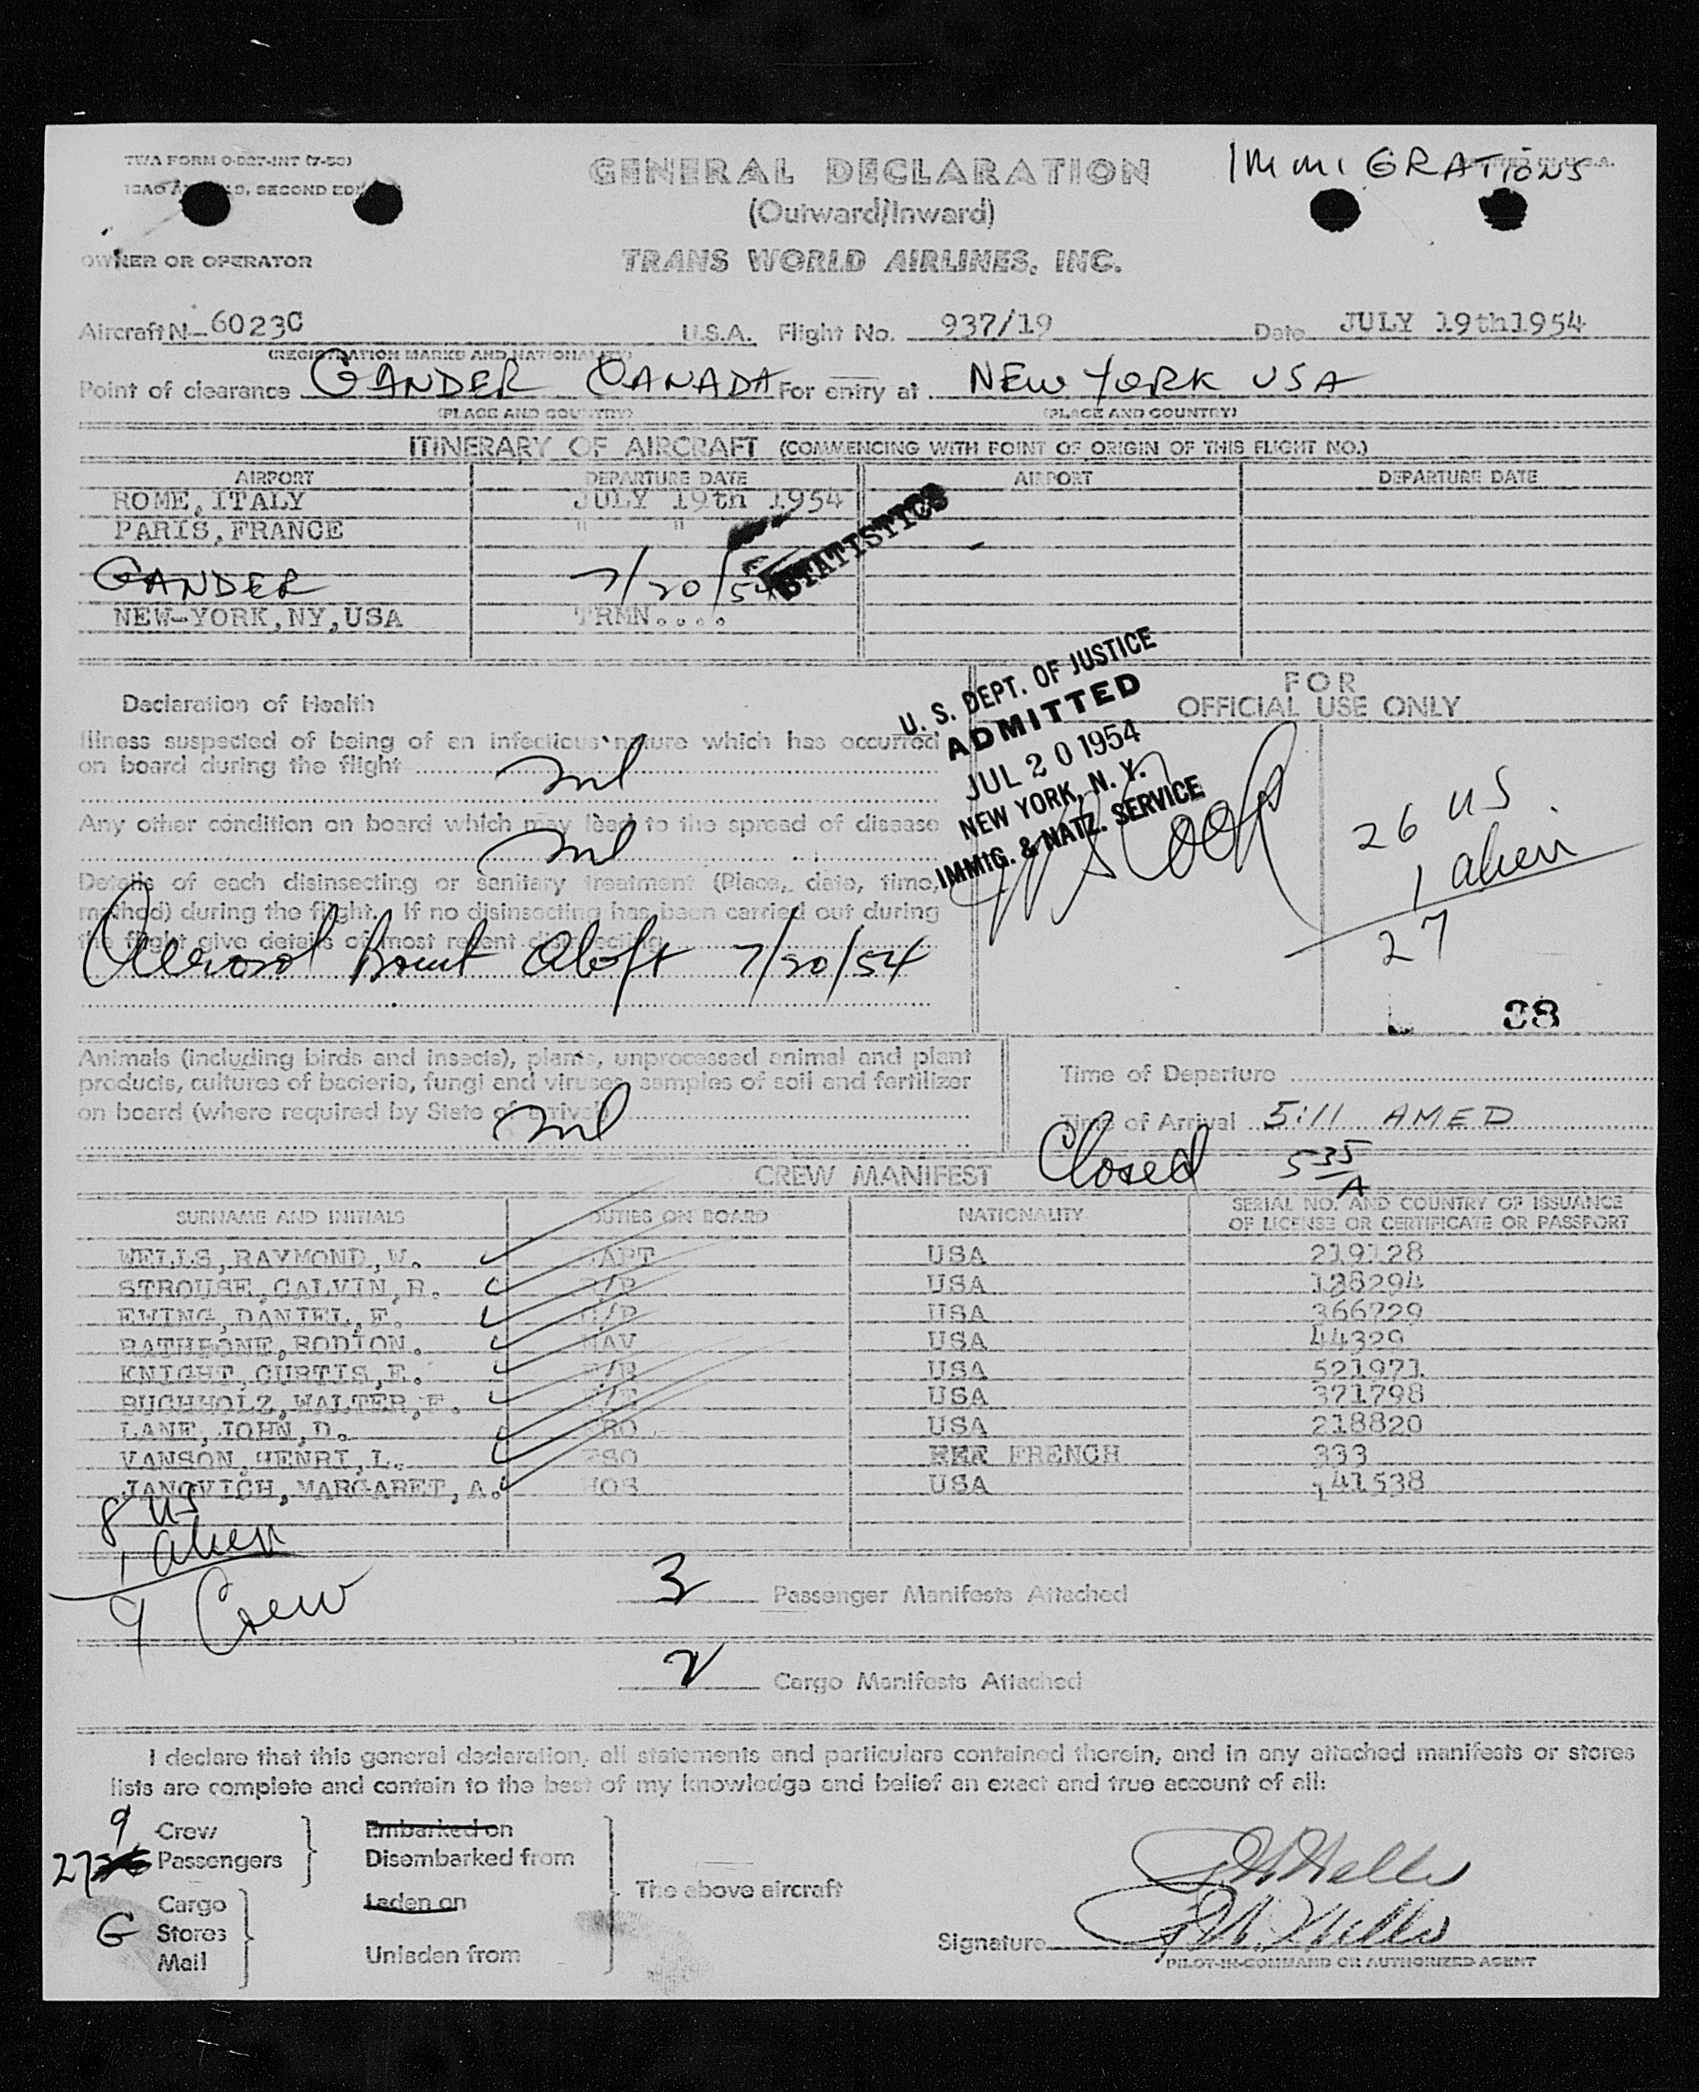 TWA FORM O-527-INT (7-50)
SECOND
IMMIGRATIONS
GENERAL DECLARATION
(Outward/Inward)
OWNER OR OPERATOR
TRANS WORLD AIRLINES, INC.
Aircraft N-6023C U.S.A. Flight No. 937/19 Date JULY 19th1954
(REGISTRATION MARKS AND NATIONALITY)
Point of clearance GANDER CANADA For entry at NEW YORK USA
(PLACE AND COUNTRY) (PLACE AND COUNTRY)
ITINERARY OF AIRCRAFT (COMMENCING WITH POINT OF ORIGIN OF THIS FLIGHT NO.)
AIRPORT DEPARTURE DATE AIRPORT DEPARTURE DATE
ROME, ITALY JULY 19th 1954
PARIS, FRANCE " "
STATISTICS
GANDER 7/20/54
NEW-YORK,NY,USA TRMN....
U. S. DEPT. OF JUSTICE
ADMITTED
JUL 20 1954
NEW YORK, N. Y.
IMMIG. & NATZ. SERVICE
FOR
OFFICIAL USE ONLY
26 US
1 alien
27
38
Declaration of Health
Illness suspected of being of an infectious nature which has occurred
on board during the flight nil
Any other condition on board which may lead to the spread of disease
nil
Details of each disinsecting or sanitary treatment (Place, date, time,
method) during the flight. If no disinsecting has been carried out during
the flight give details of most recent disinsecting
Aerosol Bomb Aloft 7/20/54
Animals (including birds and insects), plants, unprocessed animal and plant
products, cultures of bacteria, fungi and viruses, samples of soil and fertilizer
on board (where required by State of arrival)
nil
Time of Departure
Time of Arrival 5:11 AMED
Closed 535/A
CREW MANIFEST
SURNAME AND INITIALS DUTIES ON BOARD NATIONALITY SERIAL NO. AND COUNTRY OF ISSUANCE
OF LICENSE OR CERTIFICATE OR PASSPORT
WELLS,RAYMOND,W. CAPT USA 219128
STROUSE,CALVIN,R. USA 138294
EWING,DANIEL,F. USA 366729
RATHBONE,RODION. NAV USA 44329
KNIGHT,CURTIS,E. USA 521971
BUCHHOLZ,WALTER,F. USA 371798
LANE,JOHN,D. USA 218820
VANSON,HENRI,L. FRENCH 333
JANOVICH,MARGARET,A. HOS USA 141538
8 US
1 alien
9 Crew
3 Passenger Manifests Attached
2 Cargo Manifests Attached
I declare that this general declaration, all statements and particulars contained therein, and in any attached manifests or stores
lists are complete and contain to the best of my knowledge and belief an exact and true account of all:
9 Crew Embarked on
27 Passengers Disembarked from
The above aircraft
Cargo Laden on
G Stores
Mail Unladen from
Signature
PILOT-IN-COMMAND OR AUTHORIZED AGENT